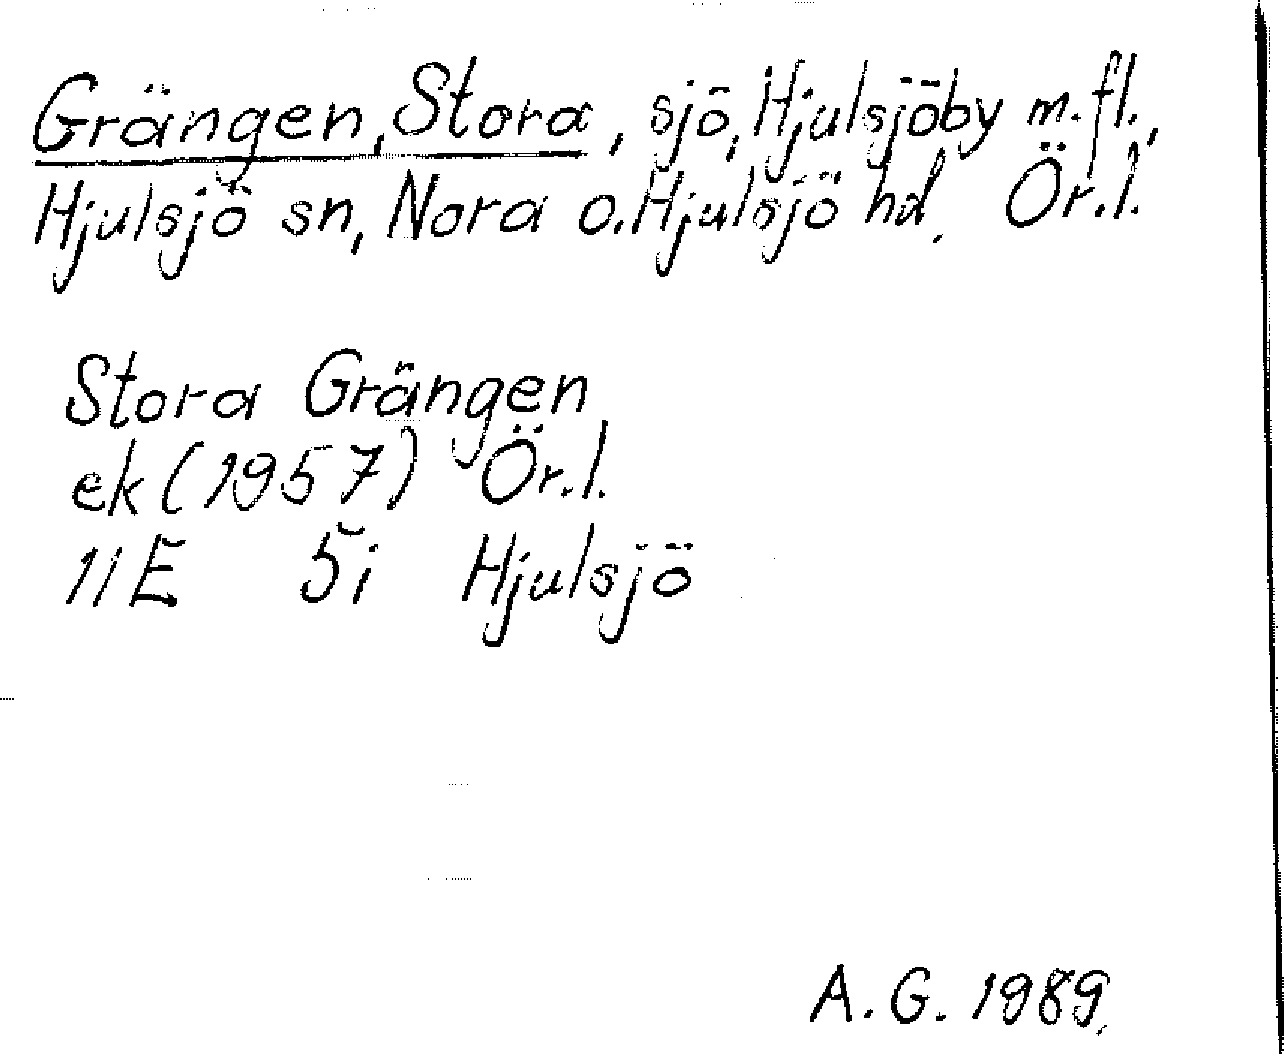 Grängen, Stora, sjö, Hjulsjöby m.fl.,
Hjulsjö sn, Nora o. Hjulsjö hd. Ör.l.
Stora Grängen
ek (1957) Ör.l.
11E 5i Hjulsjö
A.G. 1989.